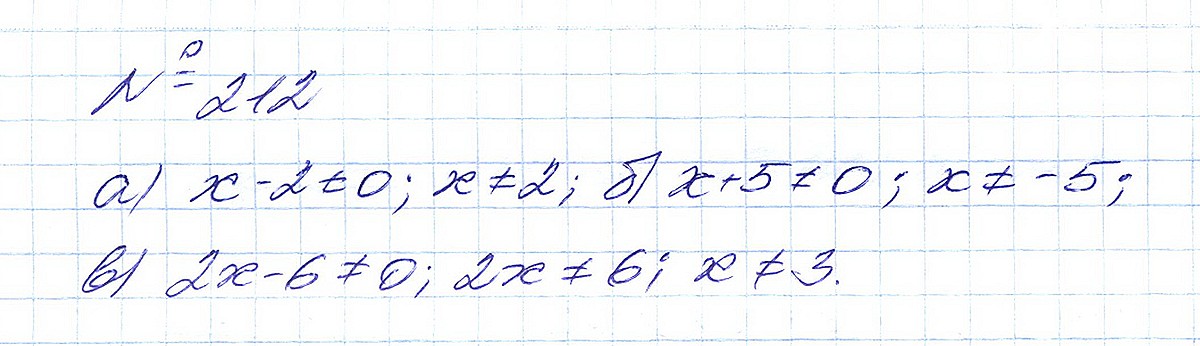 № 212
а) x - 2 ≠ 0; x ≠ 2; б) x + 5 ≠ 0; x ≠ -5;
в) 2x - 6 ≠ 0; 2x ≠ 6; x ≠ 3.